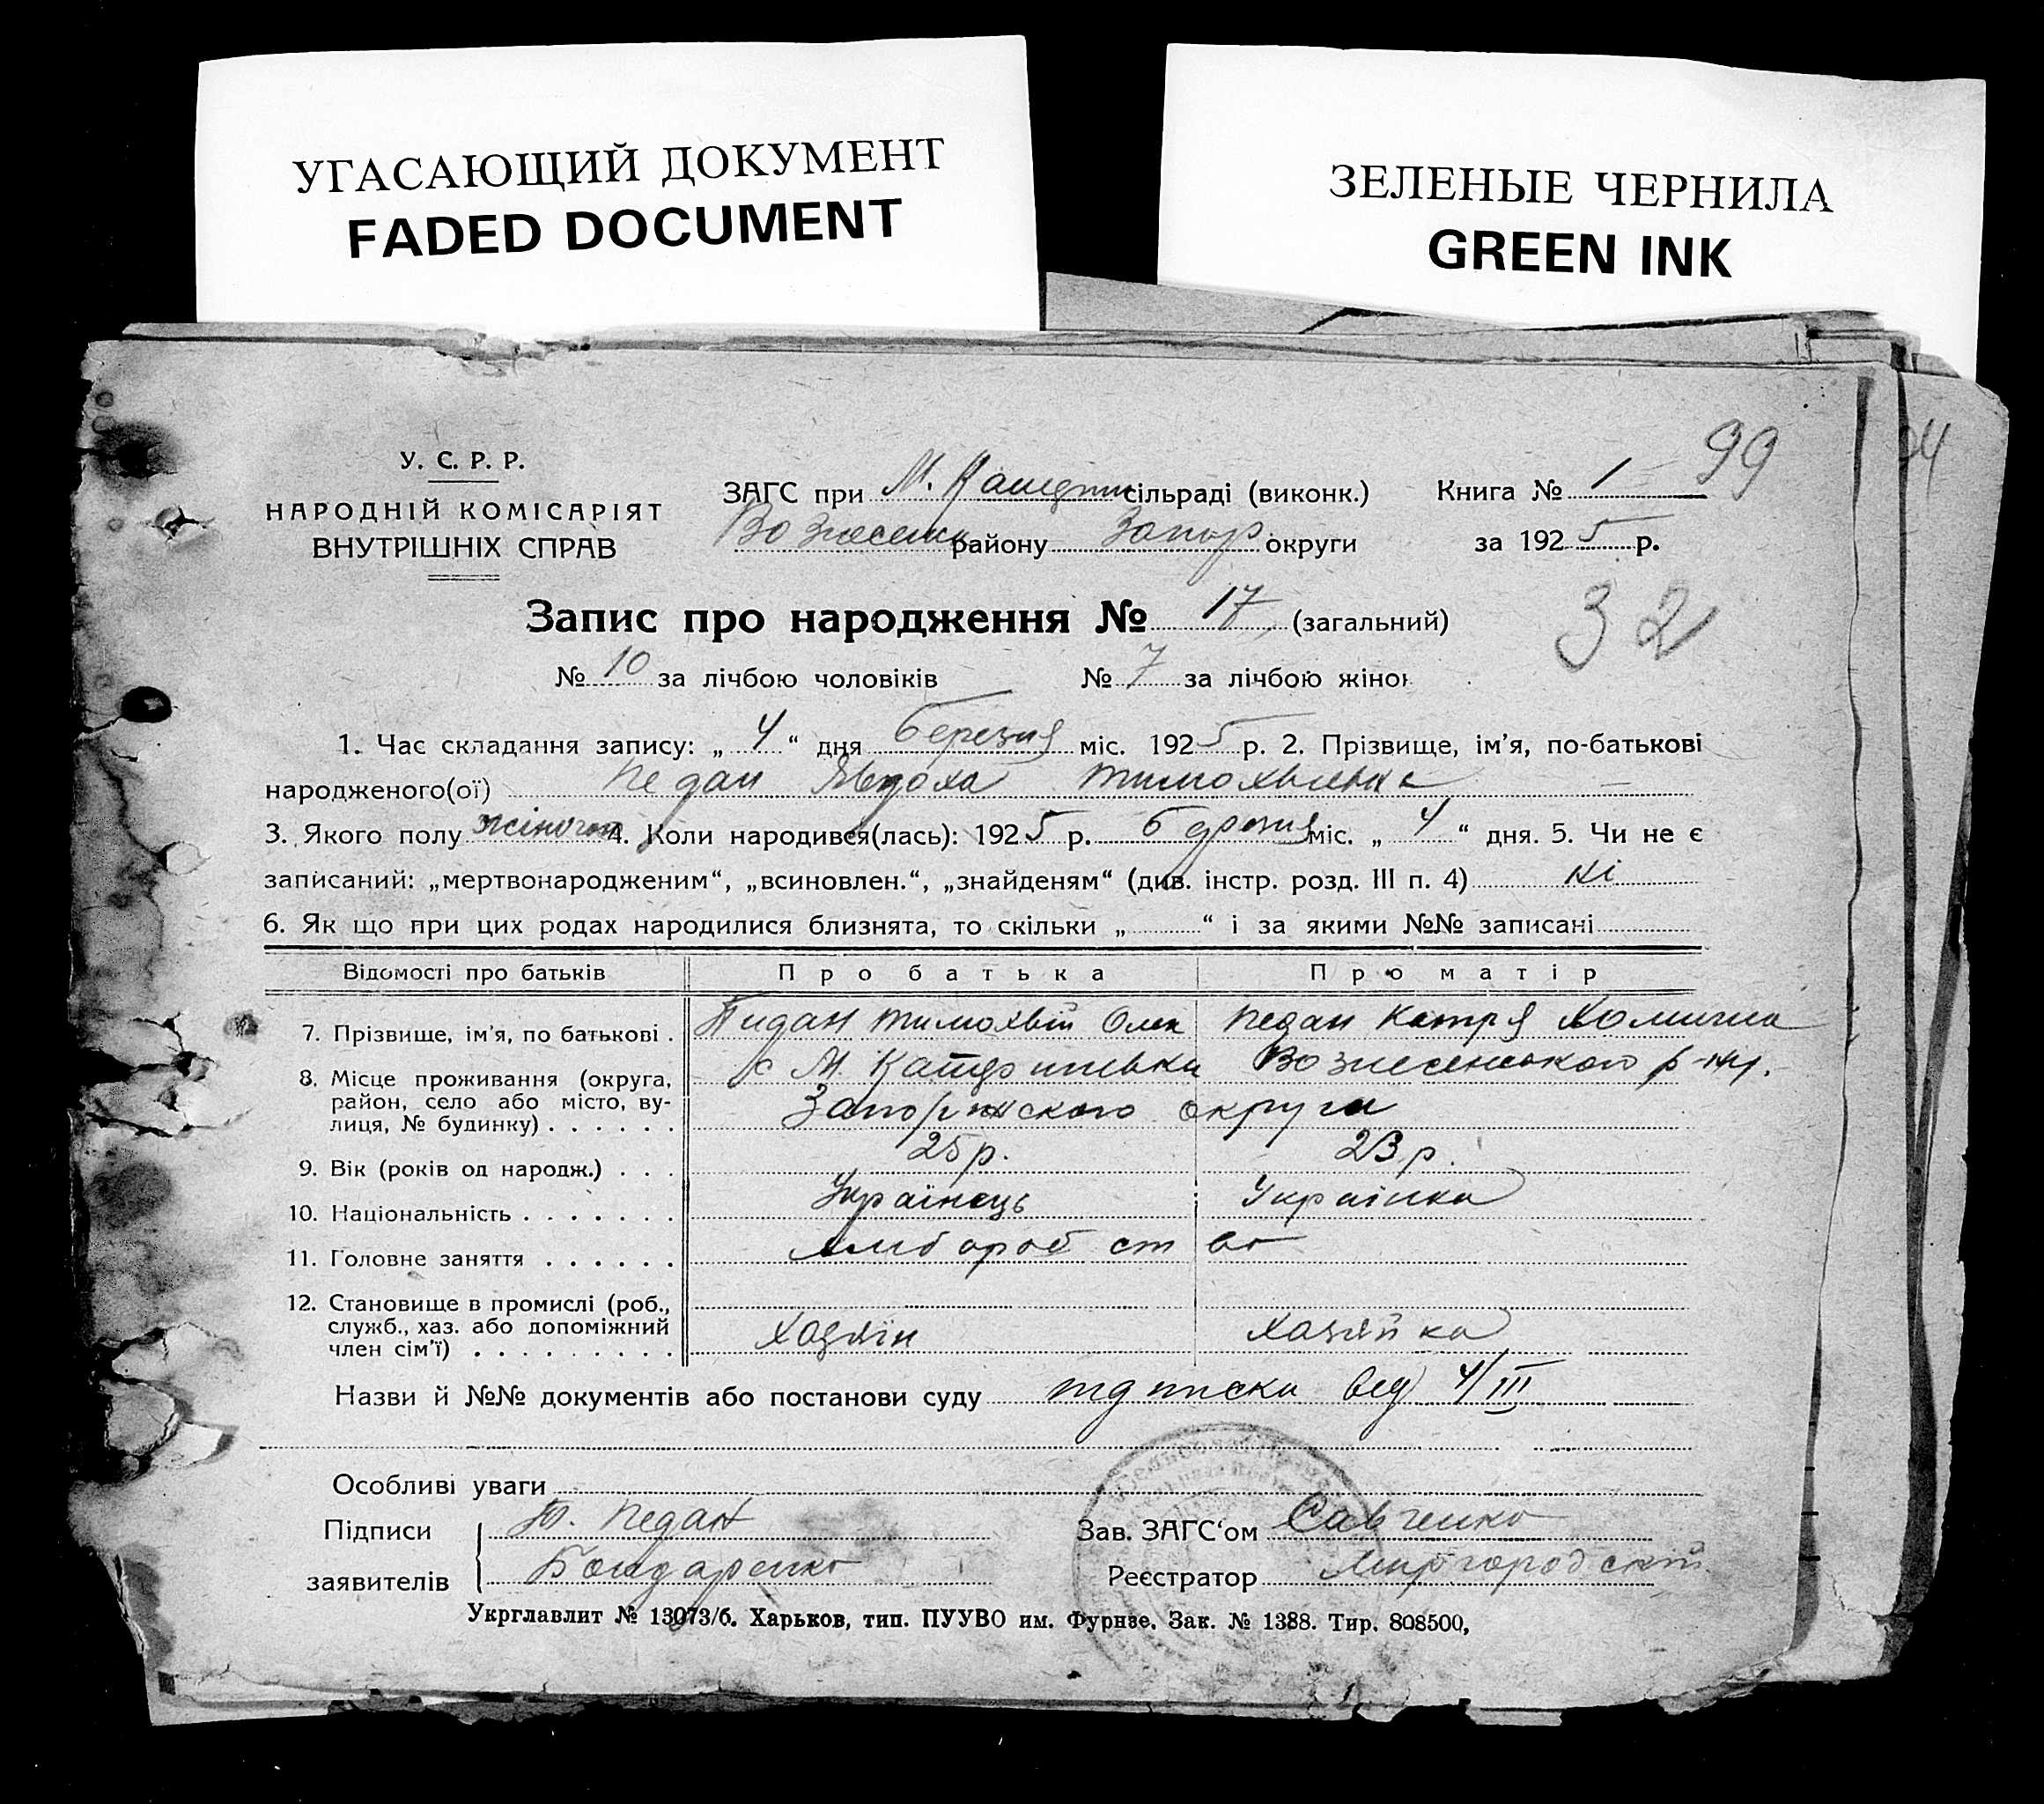 УГАСАЮЩИЙ ДОКУМЕНТ
FADED DOCUMENT
ЗЕЛЕНЫЕ ЧЕРНИЛА
GREEN INK
99
94
У. С. Р. Р.
НАРОДНІЙ КОМІСАРІЯТ
ВНУТРІШНІХ СПРАВ
ЗАГС при М. сільраді (виконк.) Книга № 1
Вознесенк району Запор. округи за 1925 р.
Запис про народження № 17 (загальний)
32
№ 10 за лічбою чоловіків № 7 за лічбою жінок
1. Час складання запису: „ 4 “ дня березня міс. 1925 р. 2. Прізвище, ім'я, по-батькові
народженого(ої) Педан Явдоха Тимохвієвна
3. Якого полу жіночого 4. Коли народився(лась): 1925 р. березня міс. „ 4 “ дня. 5. Чи не є
записаний: „мертвонародженим“, „всиновлен.“, „знайденям“ (див. інстр. розд. III п. 4) ні
6. Як що при цих родах народилися близнята, то скільки „ “ і за якими №№ записані
Відомості про батьків Про батька Про матір
7. Прізвище, ім'я, по батькові . Пидан Тимохвій Олек Педан Катря Хомична
8. Місце проживання (округа, район, село або місто, вулиця, № будинку) . . . . . . с М. Вознесенського р-ну.
округи
9. Вік (років од народж.) . . . 25 р. 23 р.
10. Національність . . . . . . . Українець Українка
11. Головне заняття . . . . . .
12. Становище в промислі (роб., служб., хаз. або допоміжний член сім'ї) . . . . . . . . . Хазяїн Хазяйка
Назви й №№ документів або постанови суду від 4/III
Особливі уваги
Підписи Т. Педан Зав. ЗАГС'ом Савченко
заявителів Бондаренко Реєстратор Миргородский
Укрглавлит № 13073/б. Харьков, тип. ПУУВО им. Фурнзе. Зак. № 1388. Тир. 808500,